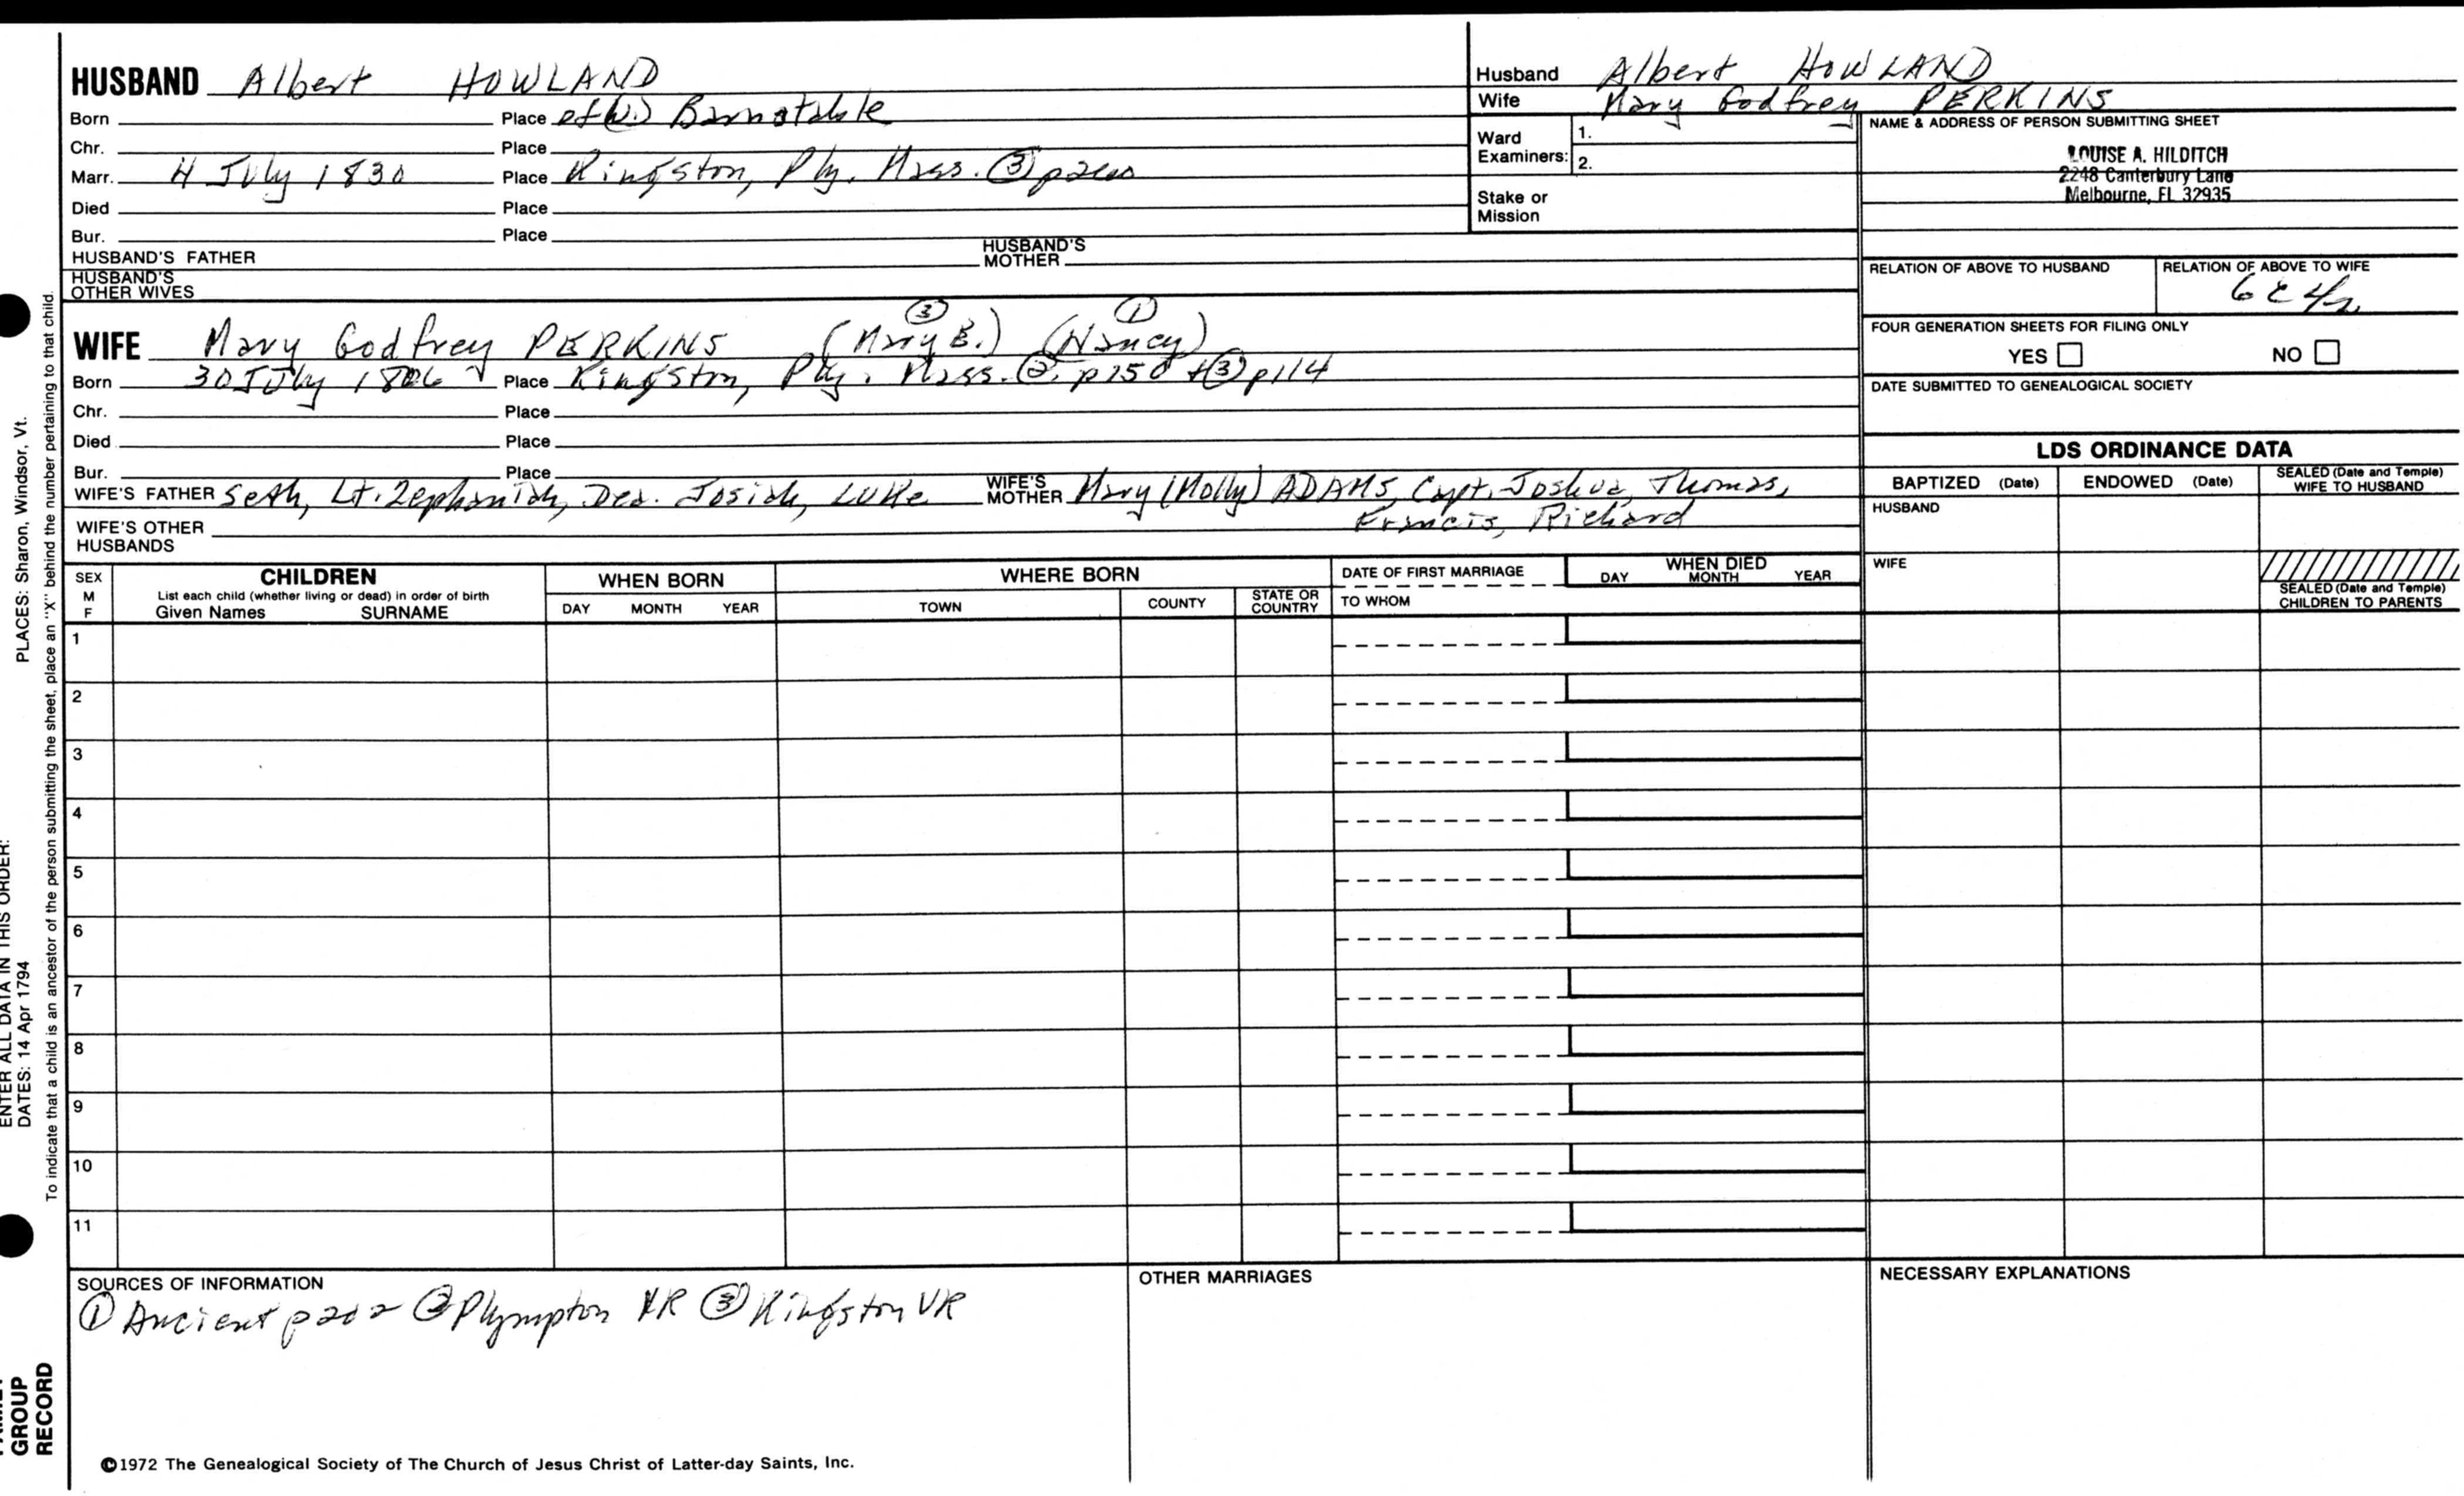 HUSBAND Albert HOWLAND
Born Place of (W.) Barnstable
Chr. Place
Marr. 4 July 1830 Place Kingston, Ply. Mass. ③
Died Place
Bur. Place
HUSBAND'S FATHER HUSBAND'S MOTHER
HUSBAND'S OTHER WIVES
Husband Albert HOWLAND
Wife Mary Godfrey PERKINS
Ward Examiners: 1.
2.
Stake or Mission
NAME & ADDRESS OF PERSON SUBMITTING SHEET
LOUISE A. HILDITCH
2248 Canterbury Lane
Melbourne, FL 32935
RELATION OF ABOVE TO HUSBAND RELATION OF ABOVE TO WIFE
③ ①
WIFE Mary Godfrey PERKINS (Mary B.) (Nancy)
Born 30 July 1806 Place Kingston, Ply. Mass. ② p150 + ③ p114
Chr. Place
Died Place
Bur. Place
WIFE'S FATHER Seth, Lt. Zephaniah, Dea. Josiah, Luke WIFE'S MOTHER Mary (Molly) ADAMS, Capt. Joshua, Thomas,
Francis, Richard
WIFE'S OTHER HUSBANDS
FOUR GENERATION SHEETS FOR FILING ONLY
YES NO
DATE SUBMITTED TO GENEALOGICAL SOCIETY
LDS ORDINANCE DATA
BAPTIZED (Date) ENDOWED (Date) SEALED (Date and Temple) WIFE TO HUSBAND
HUSBAND
WIFE
SEALED (Date and Temple) CHILDREN TO PARENTS
SEX M F
CHILDREN
List each child (whether living or dead) in order of birth
Given Names SURNAME
WHEN BORN
DAY MONTH YEAR
WHERE BORN
TOWN COUNTY STATE OR COUNTRY
DATE OF FIRST MARRIAGE
TO WHOM
WHEN DIED
DAY MONTH YEAR
1
2
3
4
5
6
7
8
9
10
11
SOURCES OF INFORMATION
① Ancient p202 ② Plympton VR ③ Kingston VR
OTHER MARRIAGES
NECESSARY EXPLANATIONS
©1972 The Genealogical Society of The Church of Jesus Christ of Latter-day Saints, Inc.
PLACES: Sharon, Windsor, Vt.
ENTER ALL DATA IN THIS ORDER:
DATES: 14 Apr 1794
To indicate that a child is an ancestor of the person submitting the sheet, place an "X" behind the number pertaining to that child.
GROUP
RECORD